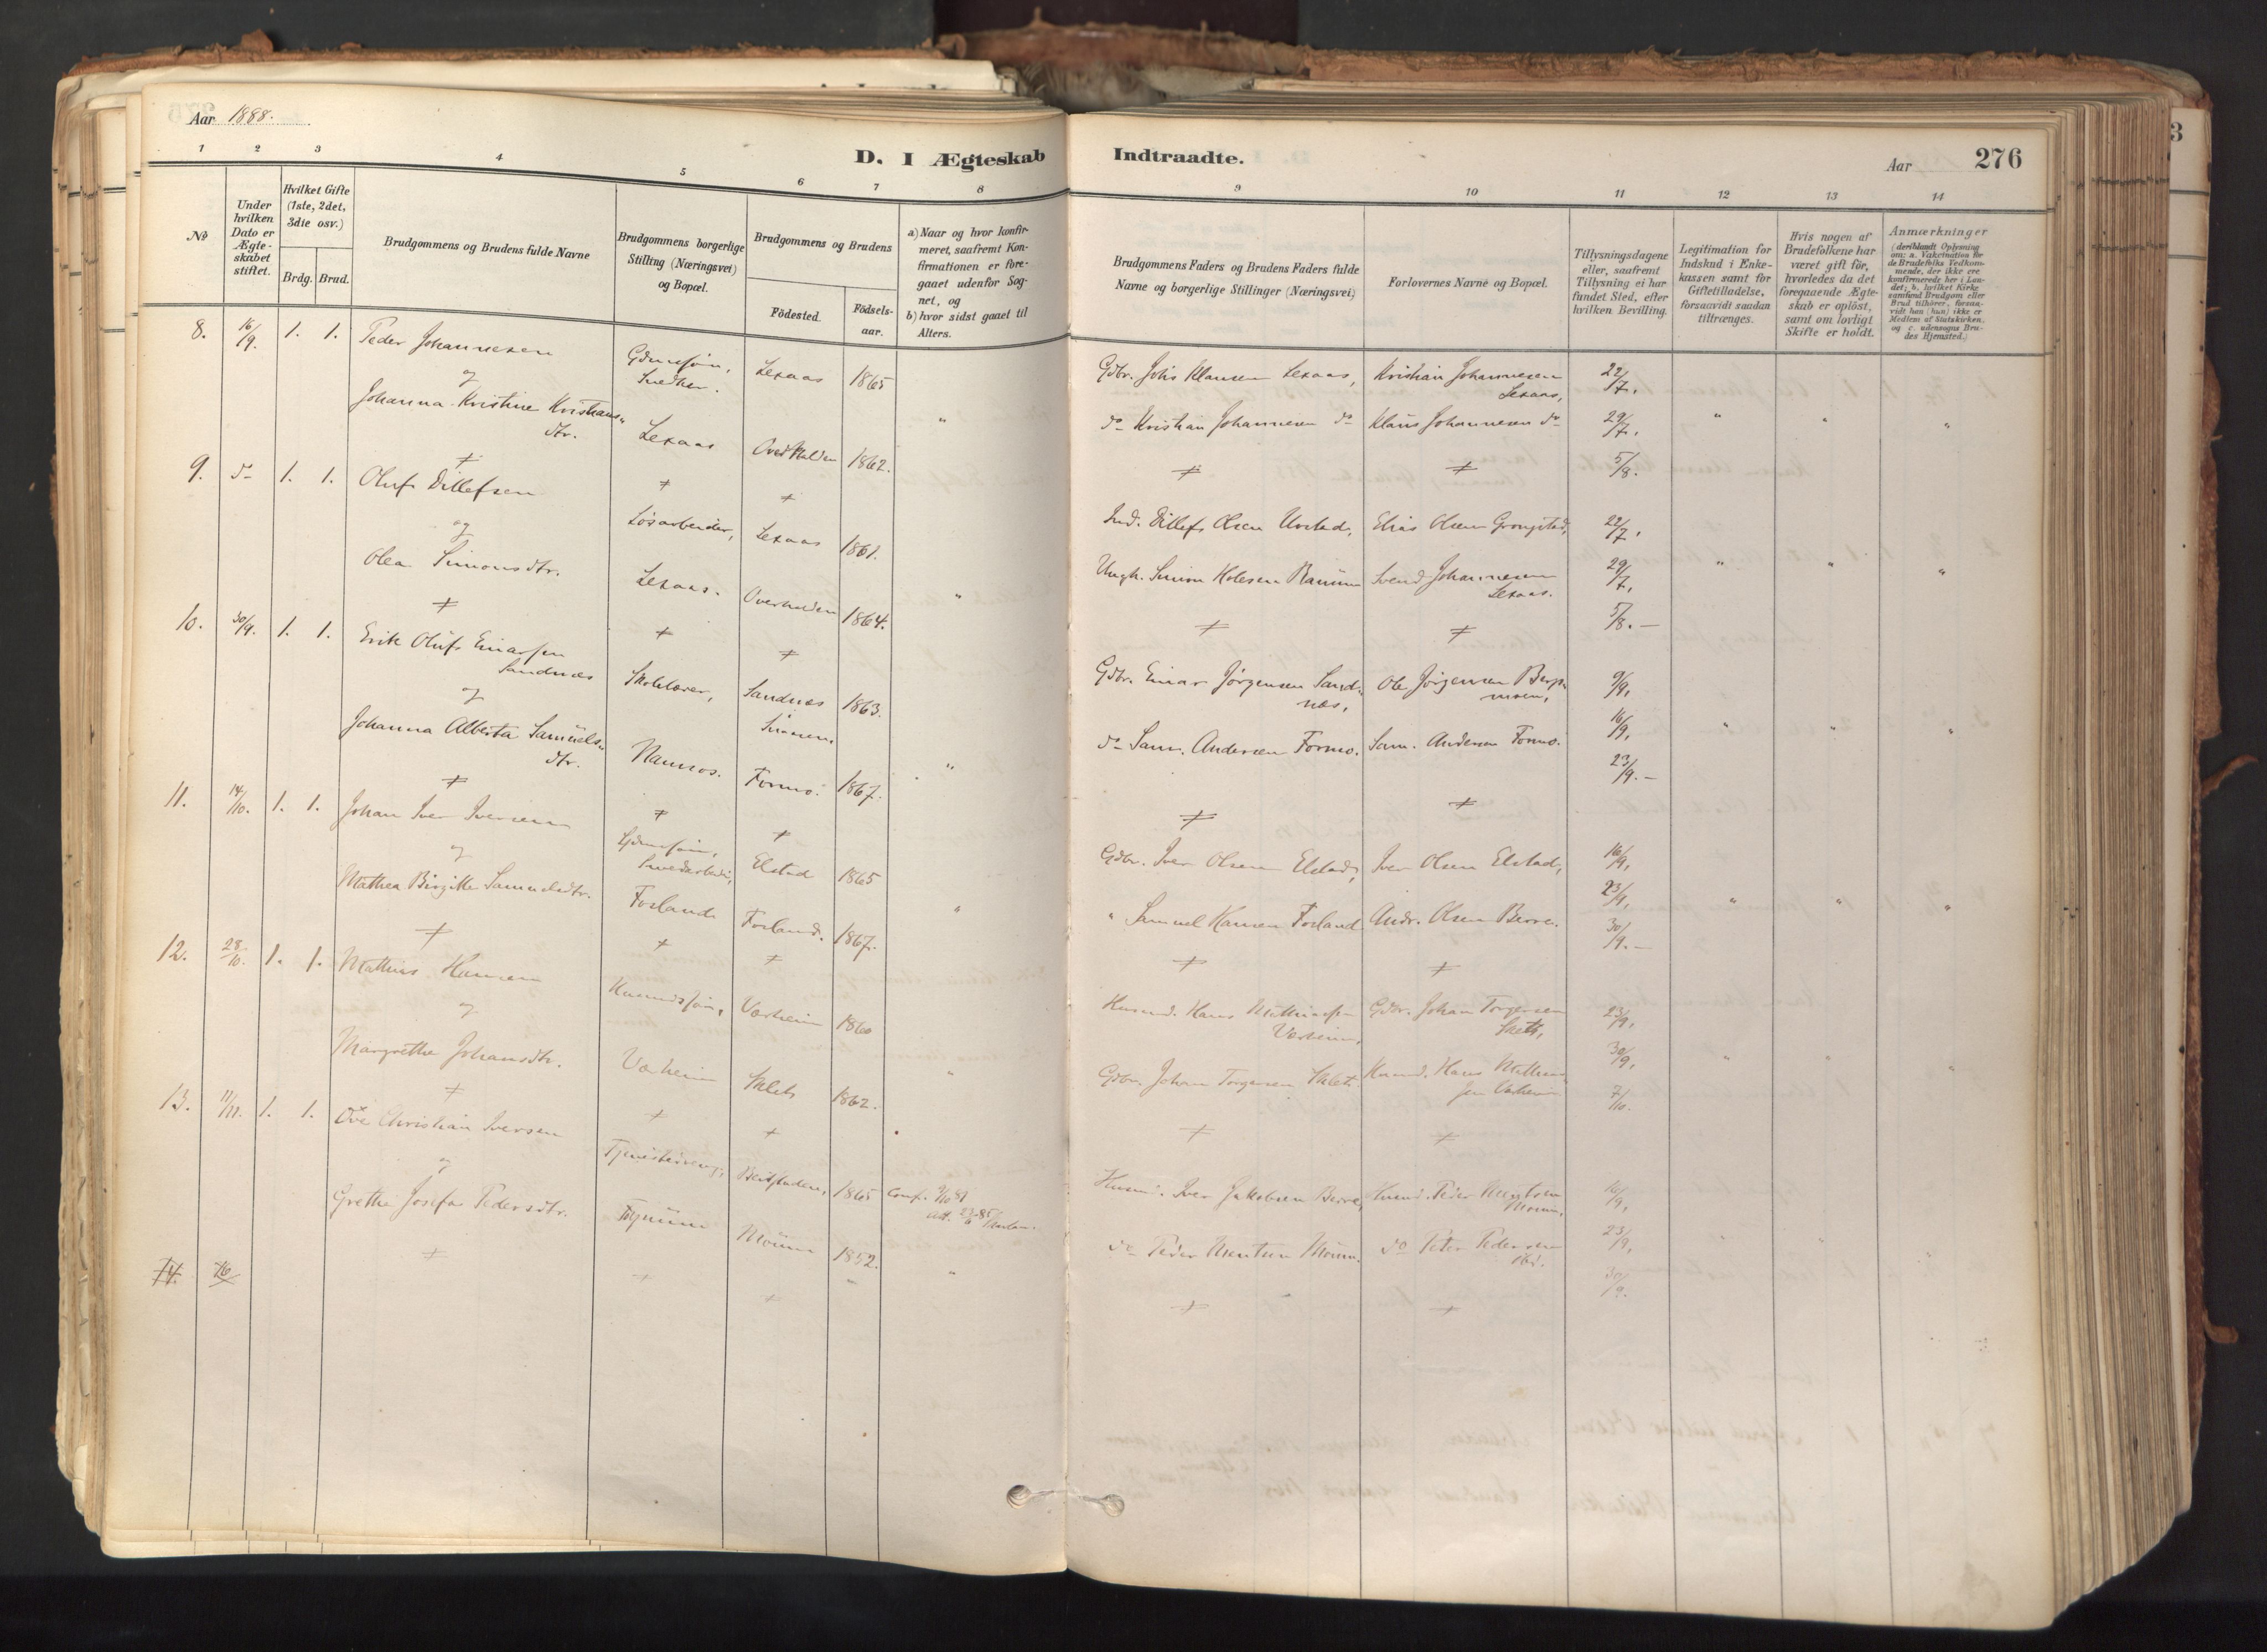 Aar 1888.
D. I Ægteskab Indtraadte.
Aar
276
1 2 3 4 5 6 7 8 9 10 11 12 13 14
No
Under hvilken Dato er Ægteskabet stiftet.
Hvilket Gifte (1ste, 2det, 3die osv.)
Brdg. Brud.
Brudgommens og Brudens fulde Navne
Brudgommens borgerlige Stilling (Næringsvei) og Bopæl.
Brudgommens og Brudens
Födested.
Födsels-aar.
a) Naar og hvor konfirmeret, saafremt Konfirmationen er foregaaet udenför Sognet, og
b) hvor sidst gaaet til Alters.
Brudgommens Faders og Brudens Faders fulde Navne og borgerlige Stillinger (Næringsvei)
Forlovernes Navne og Bopæl.
Tillysningsdagene eller, saafremt Tillysning ei har fundet Sted, efter hvilken Bevilling.
Legitimation for Indskud i Enkekassen samt for Giftetilladelse, forsaavidt saadan tiltrænges.
Hvis nogen af Brudefolkene har været gift för, hvorledes da det foregaaende Ægteskab er oplöst, samt om lovligt Skifte er holdt.
Anmærkninger
(deriblandt Oplysning om: a. Vakcination for de Brudefolks Vedkommende, der ikke ere konfirmerede her i Landet; b. hvilket Kirkesamfund Brudgom eller Brud tilhörer, forsaavidt han (hun) ikke er Medlem af Statskirken, og c. udensogns Brudes Hjemsted.)
8. 16/9. 1. 1. Peder Johannesen Lexaas 1865 Gdbr. Johs Klausen Lexaas, Kristian Johannesen Lexaas, 22/7.
og
Johanna Kristine Kristians-dtr. Lexaas 1862. " do Kristian Johannesen do Klaus Johannesen do 29/7. " " "
≠ ≠ ≠ 5/8.
9. do 1. 1. Oluf Ditlefsen Lösarbeider, Lexaas 1861. Ind. Ditlef Olsen Elias Olsen Grongstad, 22/7,
og
Olea Simonsdtr. Lexaas. Overhalden 1864. " Simon Svend Johannesen Lexaas. 29/7, " " "
≠ ≠ ≠ ≠ 5/8. —
10. 30/9. 1. 1. Erik Oluf Einarsen Sandnæs Skolelærer, Sandnæs 1863. Gdbr. Einar Jörgensen Sandnæs, Ole Jörgensen 9/9,
og
Johanna Alberta Samuels-dtr. Namsos. Formo. 1867. " do Sam. Andersen Formo. Sam. Andersen Formo. 16/9, " " "
23/9. —
≠ ≠ ≠ ≠ ≠
11. 14/10. 1. 1. Johan Iver Iversen Elstad 1865 Gdbr. Iver Olsen Elstad, Iver Olsen Elstad, 16/9,
og
Mathea Birgitte Samuelsdtr. Fosland Fosland. 1867. " " Samuel Hansen Fosland Andr. Olsen Berre. 23/9, " " "
≠ ≠ ≠ ≠ ≠ 30/9. —
12. 28/10. 1. 1. Mathias Hansen Værheim 1860 Husmd. Hans Mathiassen Værheim, Gdbr. Johan Torgersen 23/9,
og
Margrethe Johansdtr. Værheim 1862. " Gdbr. Johan Torgersen Husmd. Hans 30/9, " " "
≠ ≠ ≠ ≠ ≠ 7/10.
13. 11/11. 1. 1. Ove Christian Iversen Beitstaden, 1865 Conf. Husmd. Iver Jakobsen Berre, Husmd. Peder 16/9,
og
Grethe Josefa Pedersdtr. Moum 1852. " do Peder Moum. do Peter Pedersen ibd. 23/9, " "
≠ ≠ ≠ ≠ ≠ 30/9.
14. 16/